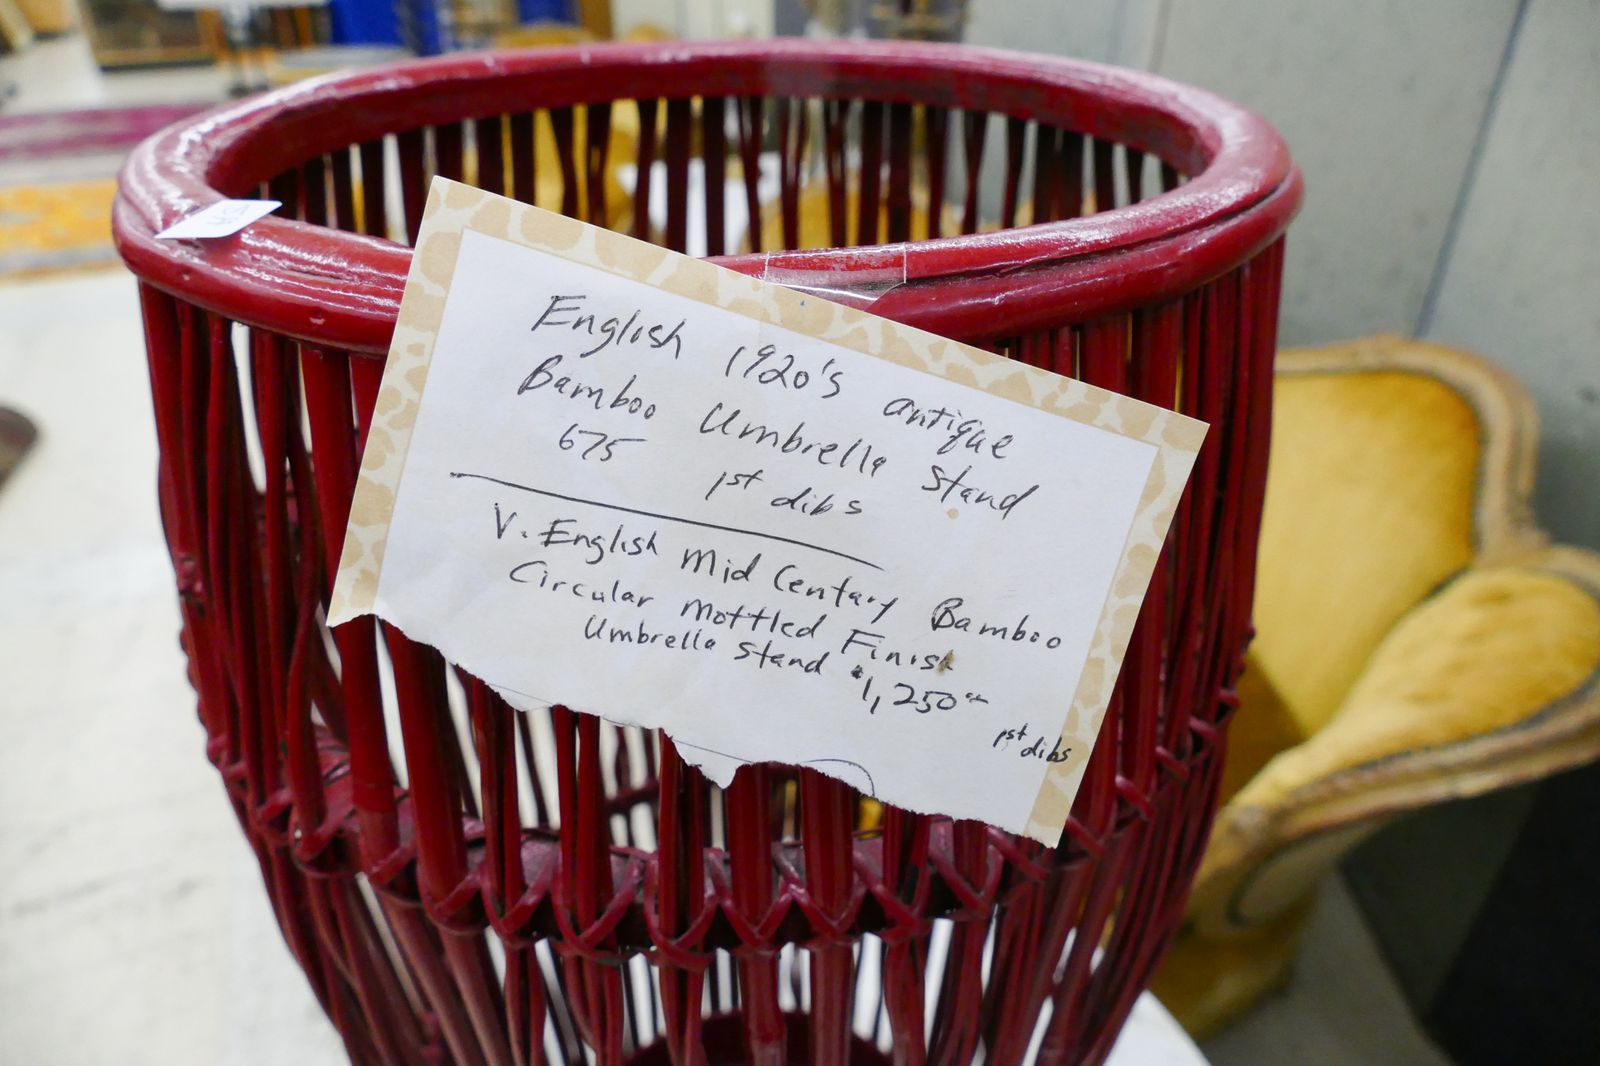 English 1920's antique
Bamboo Umbrella Stand
675 1st dibs
V. English Mid Century Bamboo
Circular Mottled Finish
Umbrella Stand $1,250
1st dibs